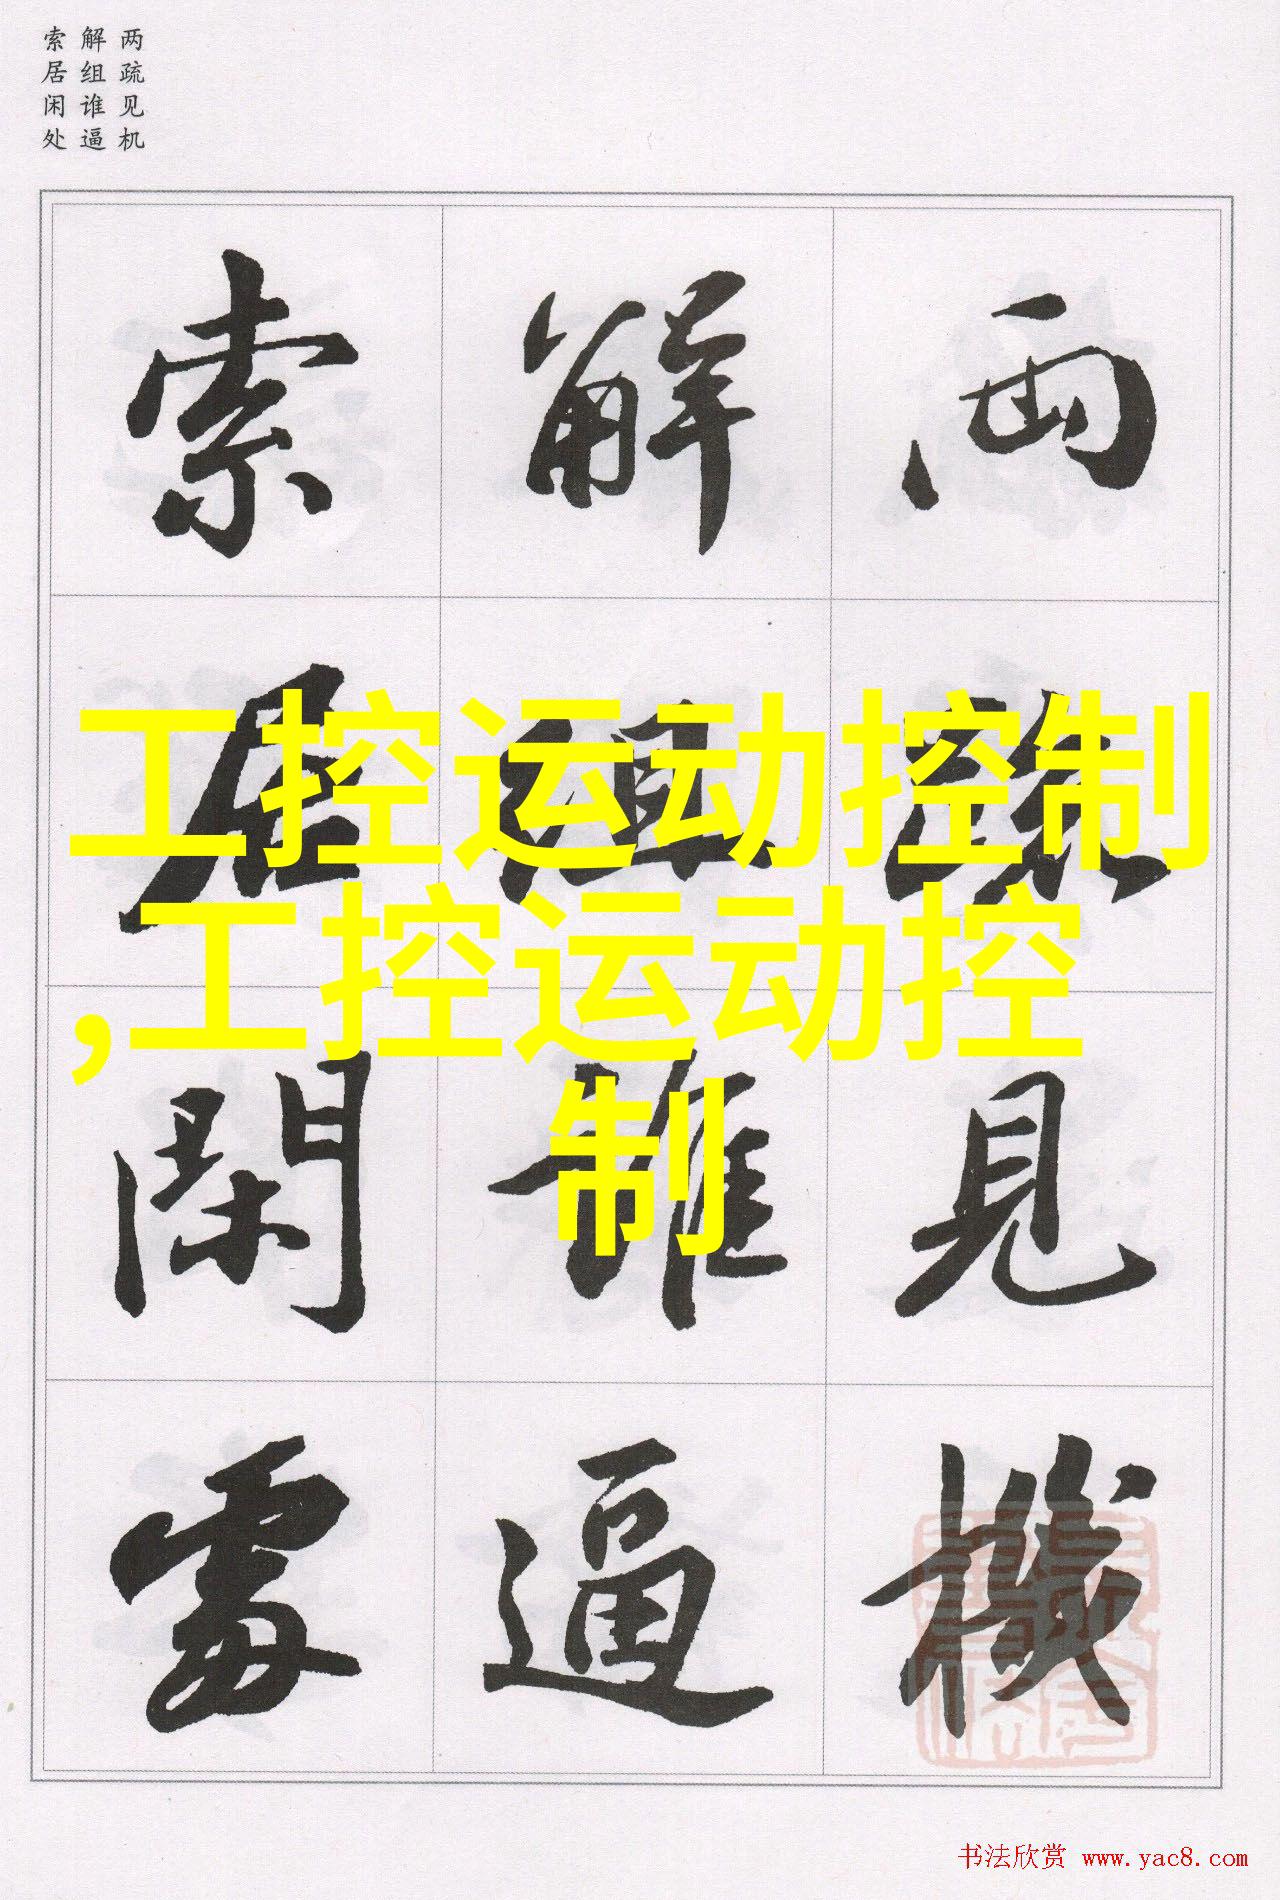 两疏见机
解组谁逼
索居闲处
兩疏見機
解組誰逼
索居閑處
工控运动控制
,工控运动控
制
书法欣赏 www.yac8.com